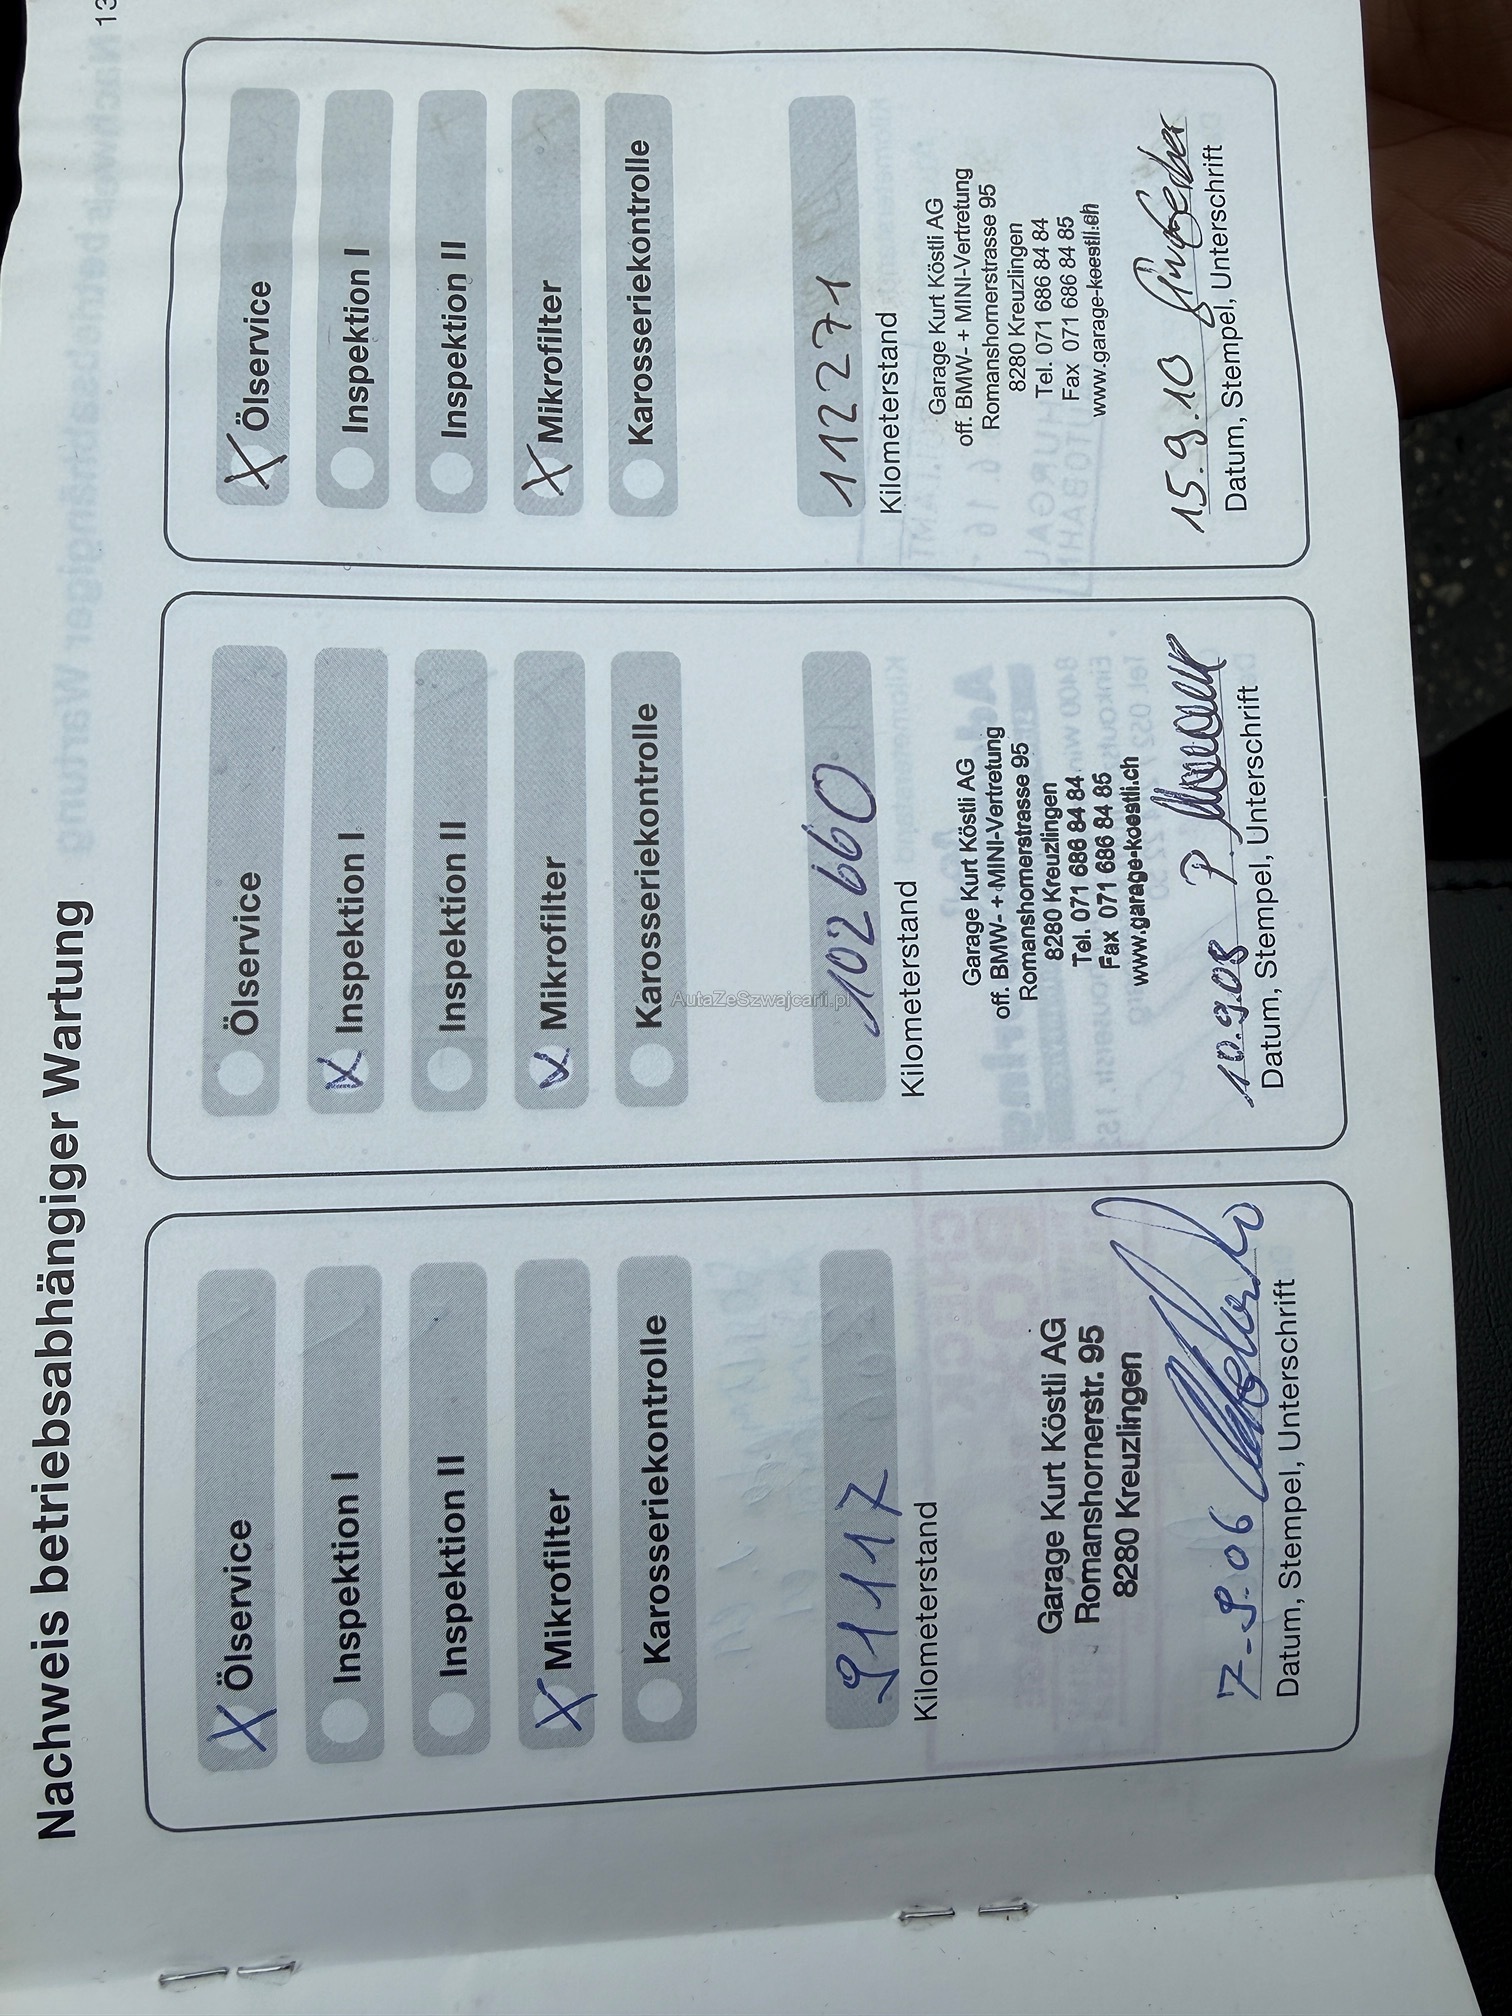 Nachweis betriebsabhängiger Wartung
X Ölservice
Inspektion I
Inspektion II
X Mikrofilter
Karosseriekontrolle
91117
Kilometerstand
Garage Kurt Köstli AG
Romanshornerstr. 95
8280 Kreuzlingen
7-9.06
Datum, Stempel, Unterschrift
Ölservice
X Inspektion I
Inspektion II
X Mikrofilter
Karosseriekontrolle
102660
Kilometerstand
Garage Kurt Köstli AG
off. BMW- + MINI-Vertretung
Romanshornerstrasse 95
8280 Kreuzlingen
Tel. 071 686 84 84
Fax 071 686 84 85
www.garage-koestli.ch
10.9.08 P.
Datum, Stempel, Unterschrift
X Ölservice
Inspektion I
Inspektion II
X Mikrofilter
Karosseriekontrolle
112271
Kilometerstand
Garage Kurt Köstli AG
off. BMW- + MINI-Vertretung
Romanshornerstrasse 95
8280 Kreuzlingen
Tel. 071 686 84 84
Fax 071 686 84 85
www.garage-koestli.ch
15.9.10
Datum, Stempel, Unterschrift
13
AutaZeSzwajcarii.pl